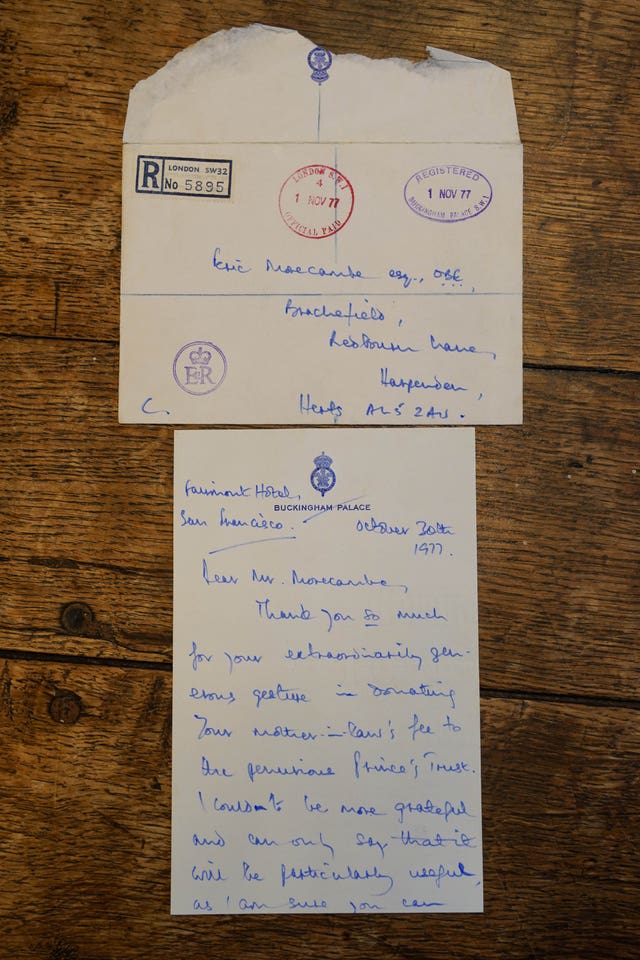 R LONDON SW32
No 5895
LONDON S.W.1
4
1 NOV 77
OFFICIAL PAID
REGISTERED
1 NOV 77
BUCKINGHAM PALACE S.W.1
Eric Morecambe esq., OBE,
Brachefield,
Redbourn Lane,
Harpenden,
Herts AL5
E II R
C.
Fairmont Hotel,
San Francisco.
BUCKINGHAM PALACE
October 30th
1977.
Dear Mr. Morecambe,
Thank you so much
for your extraordinarily gen-
erous gesture in donating
your mother-in-law's fee to
the Prince's Trust.
I couldn't be more grateful
and can only say that it
will be particularly useful,
as I am sure you can